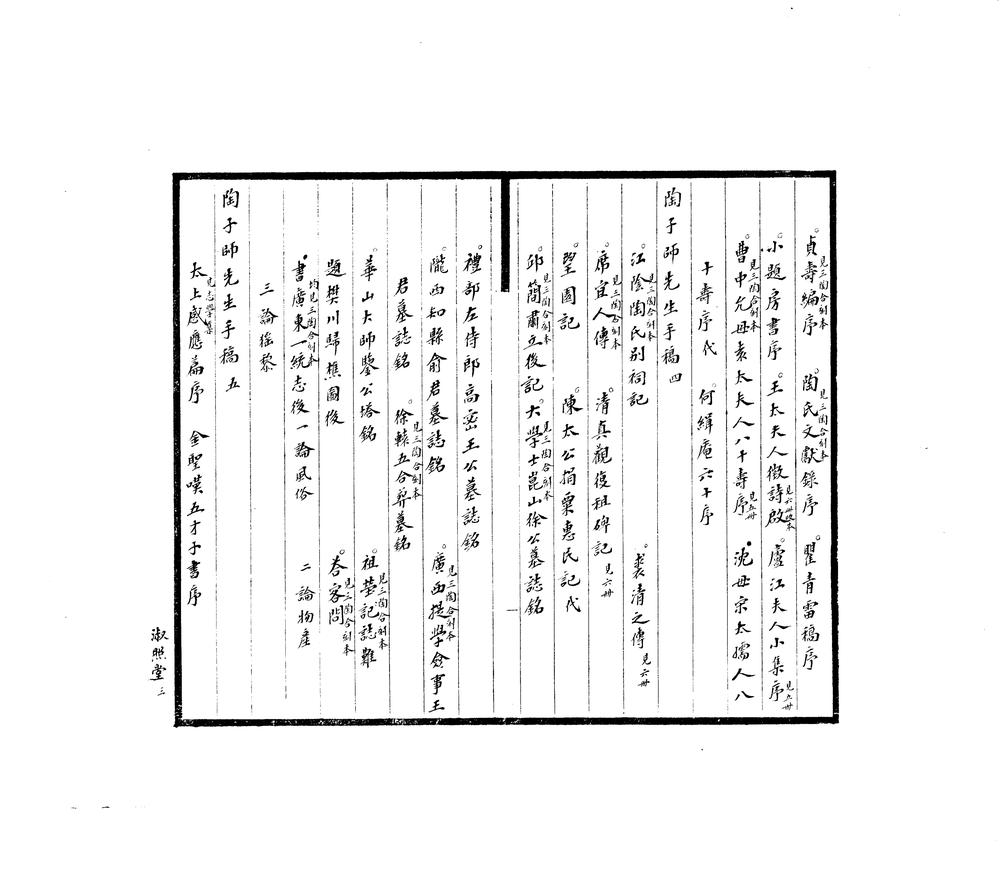 貞壽編序見三陶合刻本 陶氏文獻錄序見三陶合刻本 瞿青雷稿序
小題房書序 王太夫人徵詩啟見六冊改本 盧江夫人小集序見五冊
曹中允母袁太夫人八十壽序見三陶合刻本 見五冊 沈母宗太孺人八
十壽序代 何緝庵六十序
陶子師先生手稿四
江陰陶氏別祠記見三陶合刻本 裘清之傳見六冊
席宜人傳見三陶合刻本 清真觀復祖碑記見六冊
望園記 陳太公捐粟惠民記代
邱簡肅立後記見三陶合刻本 大學士崑山徐公墓誌銘見三陶合刻本
禮部左侍郎高密王公墓誌銘
隴西知縣俞君墓誌銘 廣西提學僉事王見三陶合刻本
君墓誌銘 徐轅五合葬墓銘見三陶合刻本
華山大師鑒公塔銘 祖塋記誌難見三陶合刻本
題樊川歸樵圖後 荅客問見三陶合刻本
書廣東一統志後均見三陶合刻本 一論風俗 二論物產
三論徭黎
陶子師先生手稿五
太上感應篇序見志學集 金聖嘆五才子書序
淑照堂 三